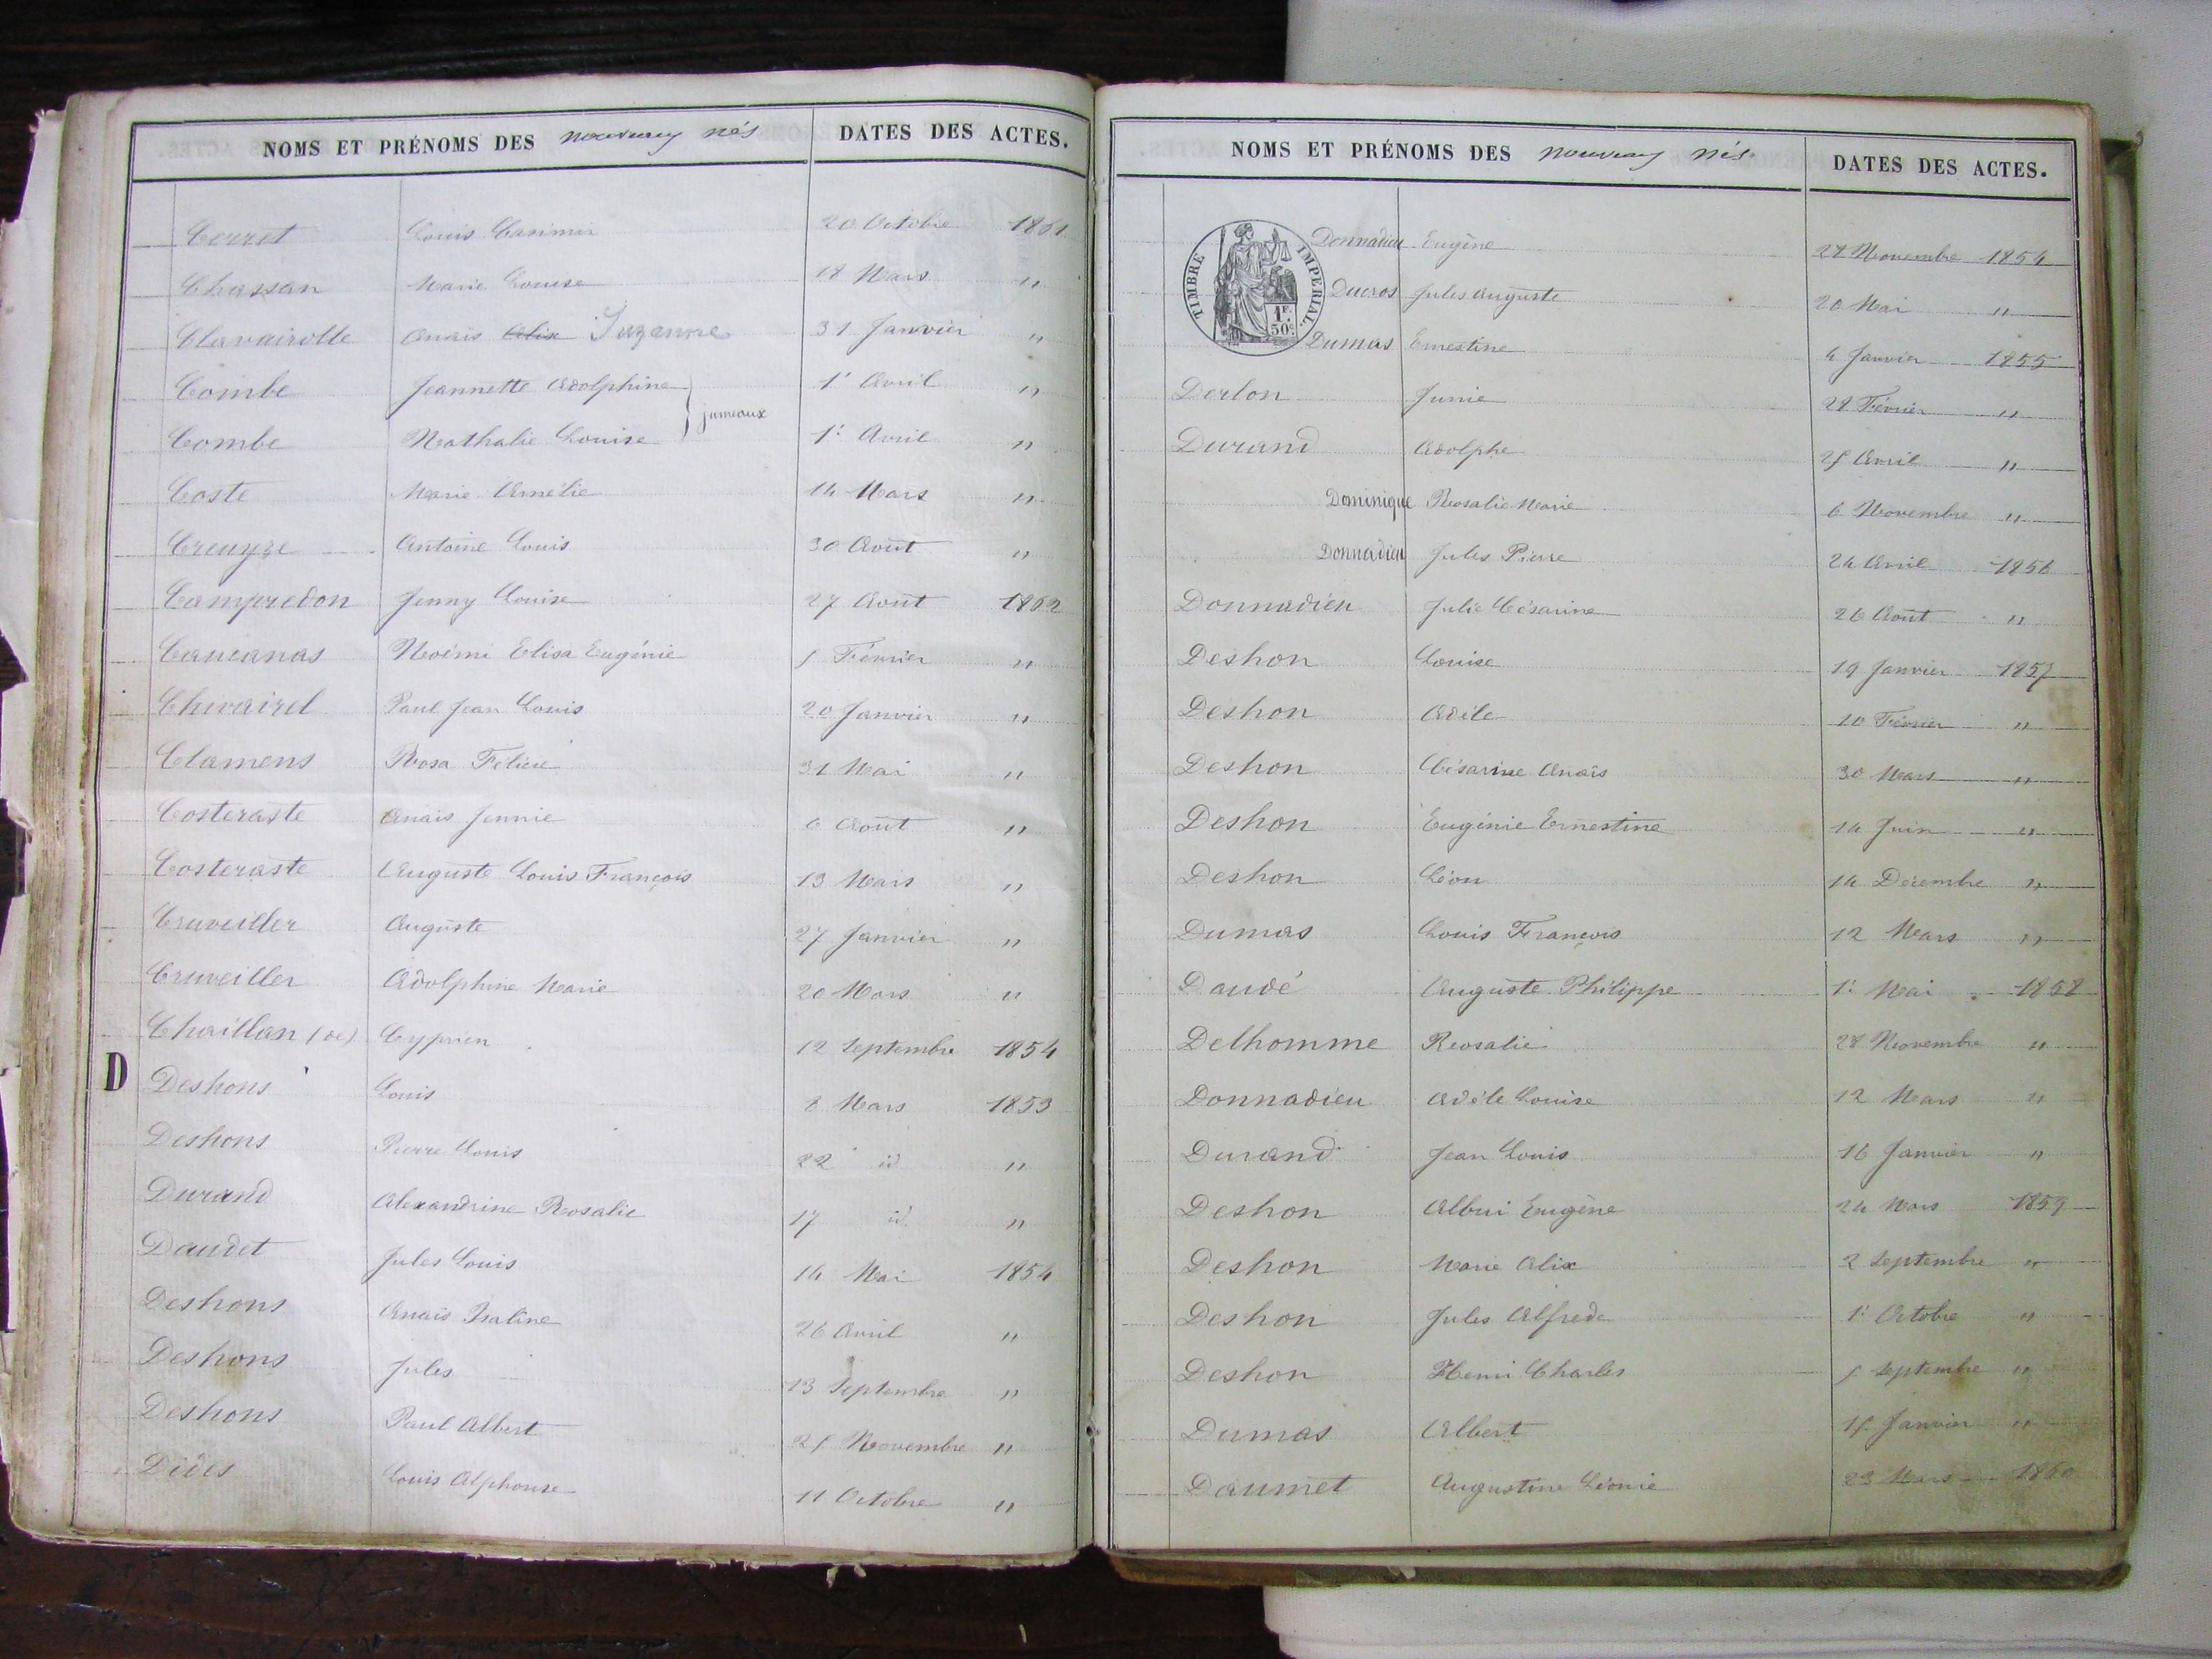 NOMS ET PRÉNOMS DES nouveaux nés DATES DES ACTES.
Cerret Louis Casimir 20 Octobre 1861
Chassan Marie Louise 18 Mars "
Clavairolle Anaïs Alix Suzanne 31 Janvier "
Combe Jeannette Adolphine 1r Avril "
jumeaux
Combe Nathalie Louise 1r Avril "
Coste Marie Amélie 14 Mars "
Creuyze Antoine Louis 30 Août "
Campredon Jenny Louise 27 Août 1862
Caucanas Noémi Elisa Eugénie 5 Février "
Chivairel Paul Jean Louis 20 Janvier "
Clamens Rosa Félicie 31 Mai "
Costeraste Anaïs Jennie 6 Août "
Costeraste Auguste Louis François 13 Mars "
Cruveiller Auguste 27 Janvier "
Cruveiller Adolphine Marie 20 Mars "
Chaillan (de) Cyprien 12 Septembre 1854
D Deshons Louis 8 Mars 1853
Deshons Pierre Louis 22 id "
Durand Alexandrine Rosalie 17 id. "
Daudet Jules Louis 14 Mai 1854
Deshons Anaïs 26 Avril "
Deshons Jules 13 Septembre "
Deshons Paul Albert 25 Novembre "
Dides Louis Alphonse 11 Octobre "
NOMS ET PRÉNOMS DES nouveaux nés. DATES DES ACTES.
TIMBRE IMPERIAL.
1F.
50c
Donnadieu Eugène 28 Novembre 1854
Ducros Jules Auguste 20 Mai "
Dumas Ernestine 4 Janvier 1855
Derlon Junie 28 Février "
Durand Adolphe 25 Avril "
Dominique Rosalie Marie 6 Novembre "
Donnadieu Jules Pierre 24 Avril 1856
Donnadieu Julie Césarine 26 Août "
Deshon Louise 19 Janvier 1857
Deshon Adèle 10 Février "
Deshon Césarine Anaïs 30 Mars "
Deshon Eugénie Ernestine 14 Juin "
Deshon Léon 14 Décembre "
Dumas Louis François 12 Mars "
Daudé Auguste Philippe 1r Mai 1858
Delhomme Rosalie 28 Novembre "
Donnadieu Adèle Louise 12 Mars "
Durand Jean Louis 16 Janvier "
Deshon Albin Eugène 24 Mars 1859
Deshon Marie Alix 2 Septembre "
Deshon Jules Alfrede 1r Octobre "
Deshon Henri Charles 5 Septembre "
Dumas Albert 15 Janvier "
Daumet Augustine Léonie 23 Mars 1860